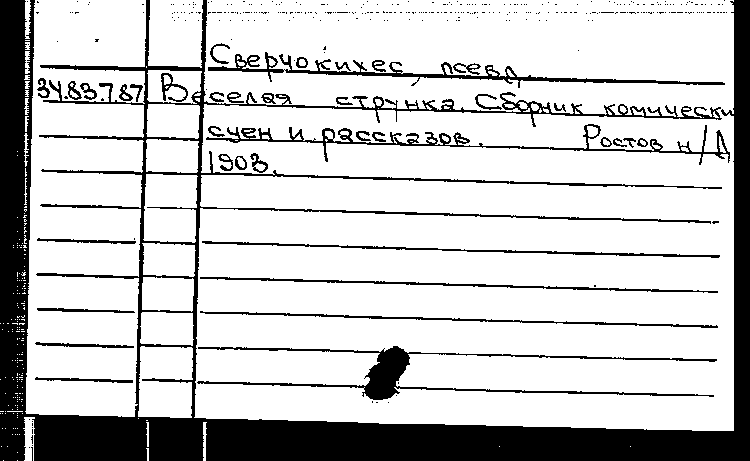 Сверчокихес, псевд.
34.83.7.87 Веселая струнка. Сборник комически
сцен и рассказов. Ростов н/Д
1903.